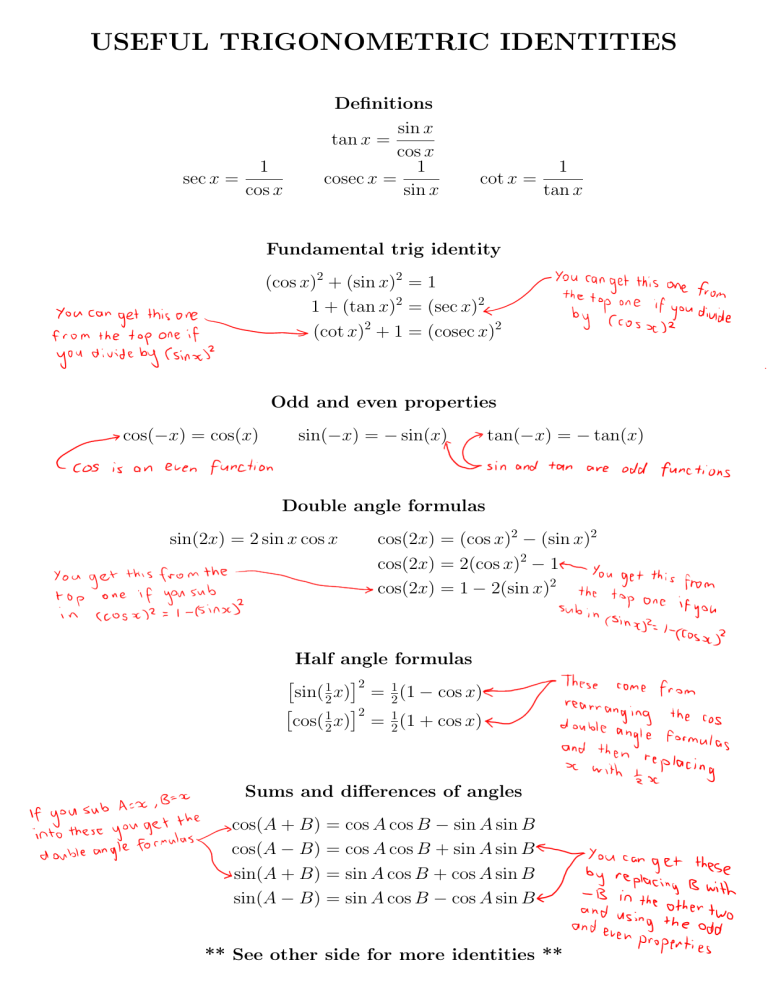 USEFUL TRIGONOMETRIC IDENTITIES
Definitions
tan x = sin x / cos x
sec x = 1 / cos x    cosec x = 1 / sin x    cot x = 1 / tan x
Fundamental trig identity
(cos x)² + (sin x)² = 1
1 + (tan x)² = (sec x)²
(cot x)² + 1 = (cosec x)²
You can get this one
from the top one if
you divide by (sinx)²
You can get this one from
the top one if you divide
by (cos x)²
Odd and even properties
cos(−x) = cos(x)    sin(−x) = − sin(x)    tan(−x) = − tan(x)
cos is an even function
sin and tan are odd functions
Double angle formulas
sin(2x) = 2 sin x cos x    cos(2x) = (cos x)² − (sin x)²
cos(2x) = 2(cos x)² − 1
cos(2x) = 1 − 2(sin x)²
You get this from the
top one if you sub
in (cosx)² = 1-(sinx)²
You get this from
the top one if you
sub in (sinx)²= 1-(cosx)²
Half angle formulas
[sin(½x)]² = ½(1 − cos x)
[cos(½x)]² = ½(1 + cos x)
These come from
rearranging the cos
double angle formulas
and then replacing
x with ½ x
Sums and differences of angles
If you sub A=x, B=x
into these you get the
double angle formulas
cos(A + B) = cos A cos B − sin A sin B
cos(A − B) = cos A cos B + sin A sin B
sin(A + B) = sin A cos B + cos A sin B
sin(A − B) = sin A cos B − cos A sin B
You can get these
by replacing B with
-B in the other two
and using the odd
and even properties
** See other side for more identities **